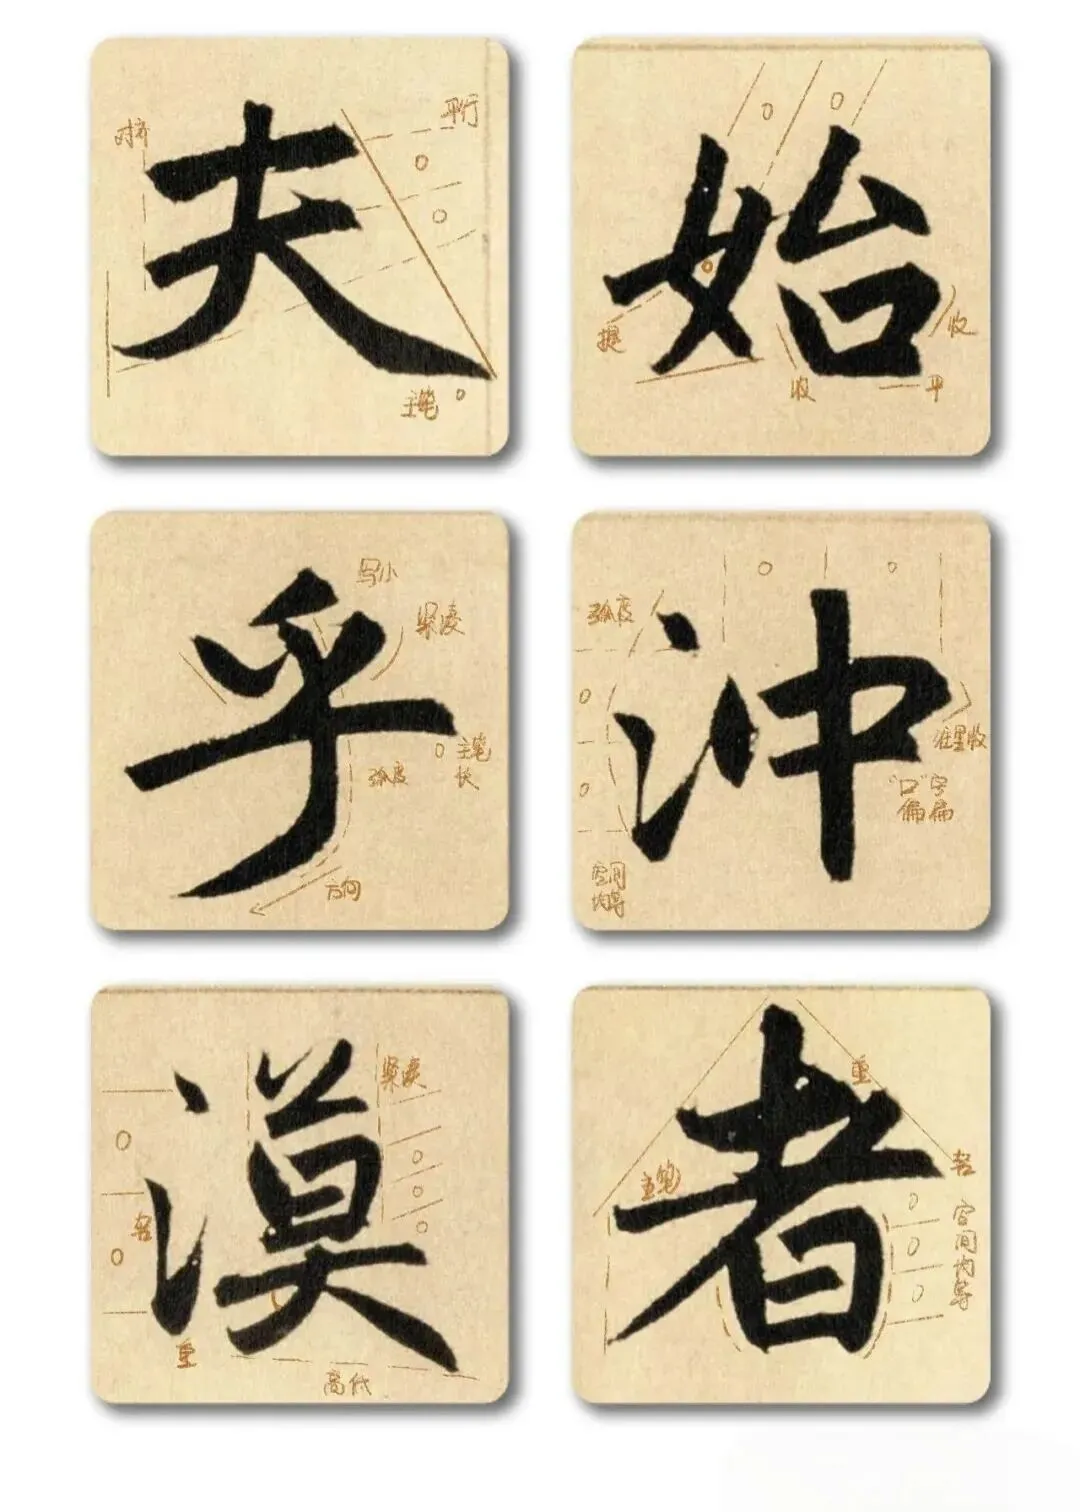 夫
对齐
平行
主笔
始
提
收
收
平
乎
写小
紧凑
主笔
长
弧度
方向
冲
弧度
往里收
"口"字
偏扁
空间
均等
漠
紧凑
重
高低
者
重
主笔
空间均等